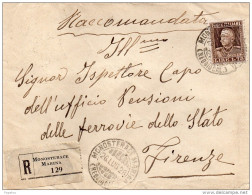 Raccomandata
Ill.mo
Signor Ispettore Capo
dell'ufficio Pensioni
delle ferrovie dello Stato
Firenze
R
MONOSTERACE
MARINA
129